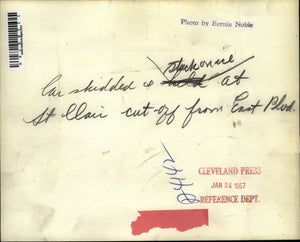 Photo by Bernie Noble
Car skidded & at
St Clair cut-off from East Blvd.
CLEVELAND PRESS
JAN 24 1957
REFERENCE DEPT.